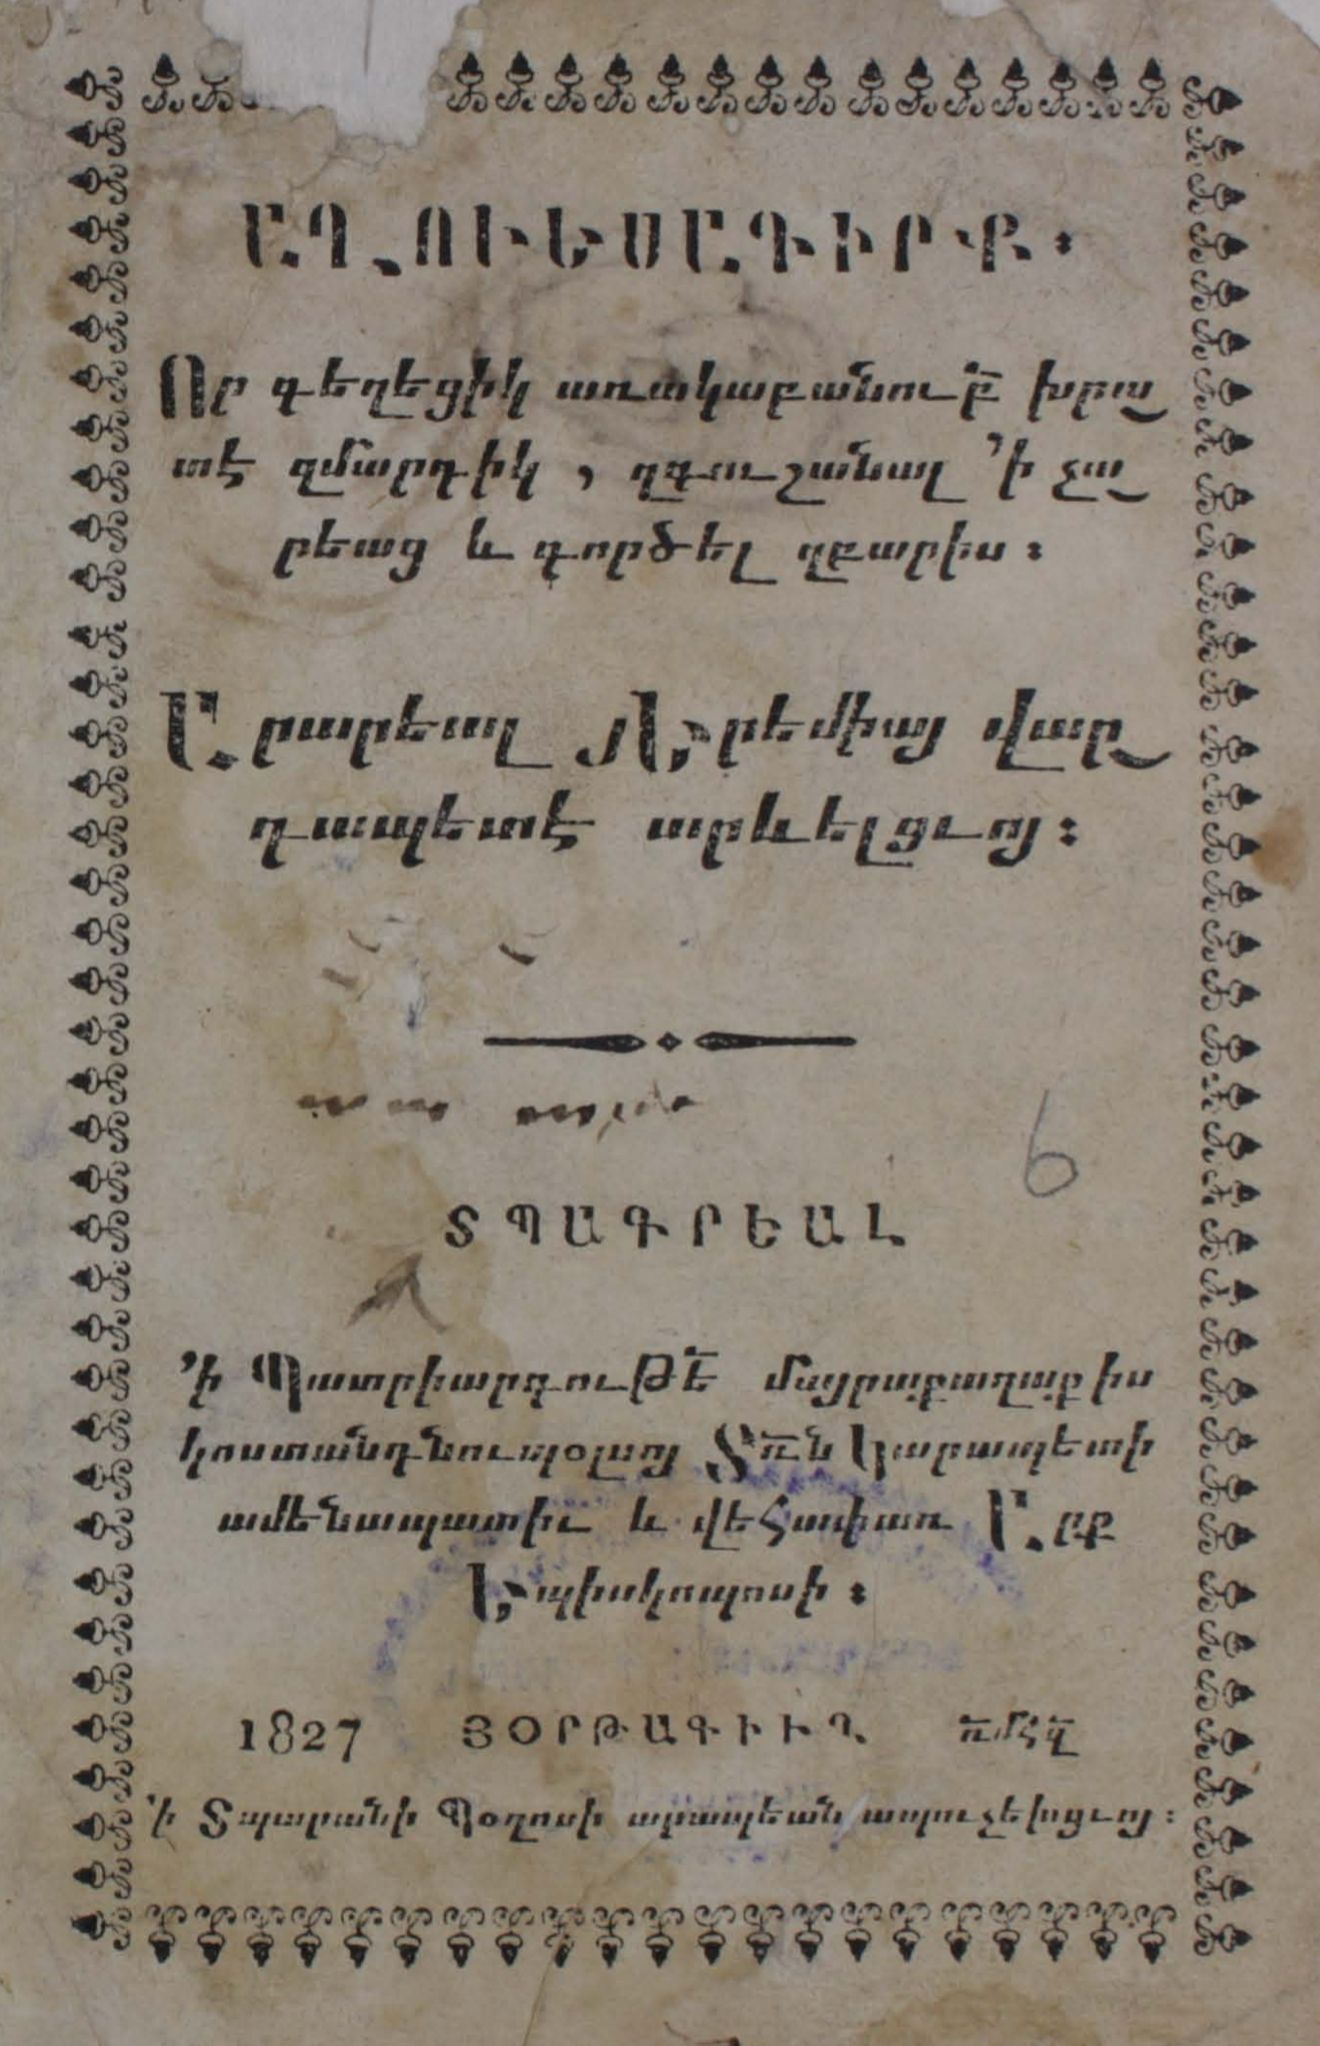 ԱՂՈՒԵՍԱԳԻՐՔ։
Որ գեղեցիկ առակաբանու՟բ խրա֊
տէ զմարդիկ, զգուշանալ ՚ի չա֊
րեաց և գործել զբարիս։
Արարեալ յԵրեմիայ վար֊
դապետէ արևելցւոյ։
6
ՏՊԱԳՐԵԱԼ
՚Ի Պատրիարգութէ՟ մայրաքաղաքիս
կոստանդնուպօլսոյ Տն՟ Կարապետի
ամենապատիւ և վեհափառ Արք
Եպիսկոպոսի։
1827 ՅՕՐԹԱԳԻՒՂ ռմհզ
՚ի Տպարանի Պօղոսի արապեան ապուչեխցւոյ։